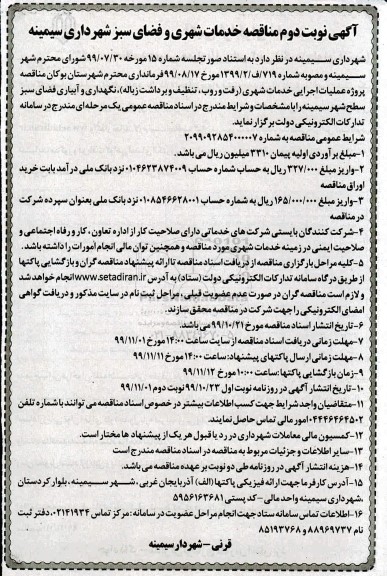 آگهی نوبت دوم مناقصه خدمات شهری و فضای سبز شهرداری سیمینه
شهرداری سیمینه در نظر دارد به استناد صورتجلسه شماره ۱۵ مورخه ۹۹/۰۷/۳۰ شورای محترم شهر
سیمینه و مصوبه شماره ۷۱۹/ف/۱۳۹۹/۲ مورخ ۹۹/۰۸/۱۷ فرمانداری محترم شهرستان بوکان مناقصه
پروژه عملیات اجرایی خدمات شهری (رفت و روب، تنظیف و برداشت زباله)، نگهداری و آبیاری فضای سبز
سطح شهر سیمینه را با مشخصات و شرایط مندرج در اسناد مناقصه عمومی یک مرحله ای مندرج در سامانه
تدارکات الکترونیکی دولت برگزار نماید.
شرایط عمومی مناقصه به شماره ۲۰۹۹۰۹۲۸۵۴۰۰۰۰۰۷
۱-مبلغ برآوردی اولیه پیمان ۳۳۱۰ میلیون ریال می باشد.
۲-واریز مبلغ ۳۲۷/۰۰۰ ریال به حساب شماره حساب ۰۱۰۴۶۲۳۸۷۴۰۰۹ نزد بانک ملی در آمد بابت خرید
اوراق مناقصه
۳-واریز مبلغ ۱۶۵/۰۰۰/۰۰۰ ریال به شماره حساب ۰۱۰۸۵۴۶۶۲۸۰۰۱ نزد بانک ملی بعنوان سپرده شرکت
در مناقصه
۴-شرکت کنندگان بایستی شرکت های خدماتی دارای صلاحیت کار از اداره تعاون، کار و رفاه اجتماعی و
صلاحیت ایمنی در زمینه خدمات شهری مورد مناقصه و همچنین توان مالی انجام امورات را داشته باشد.
۵-کلیه مراحل بارگزاری مناقصه از دریافت اسناد مناقصه تا ارائه پیشنهاد مناقصه گران و بازگشایی پاکتها
از طریق درگاه سامانه تدارکات الکترونیکی دولت (ستاد) به آدرس www.setadiran.ir انجام خواهد شد
و لازم است مناقصه گران در صورت عدم عضویت قبلی، مراحل ثبت نام در سایت مذکور و دریافت گواهی
امضای الکترونیکی را جهت شرکت در مناقصه محقق سازند.
۶-تاریخ انتشار اسناد مناقصه مورخ ۹۹/۱۰/۲۱ می باشد.
۷-مهلت زمانی دریافت اسناد مناقصه از سایت ساعت ۱۴:۰۰ مورخ ۹۹/۱۱/۰۱
۸-مهلت زمانی ارسال پاکتهای پیشنهاد: ساعت ۱۴:۰۰ مورخ ۹۹/۱۱/۱۱
۹-زمان بازگشایی پاکتها: ساعت ۱۰:۰۰ مورخ ۹۹/۱۱/۱۲
۱۰-تاریخ انتشار آگهی در روزنامه نوبت اول ۹۹/۱۰/۲۳ نوبت دوم ۹۹/۱۱/۰۱
۱۱-متقاضیان واجد شرایط جهت کسب اطلاعات بیشتر در خصوص اسناد مناقصه می توانند با شماره تلفن
۰۴۴۴۶۴۶۴۵۰۲ امور مالی تماس حاصل نمایند.
۱۲-کمسیون مالی معاملات شهرداری در رد یا قبول هر یک از پیشنهاد ها مختار است.
۱۳-سایر اطلاعات و جزئیات مربوط به مناقصه در اسناد مناقصه مندرج است
۱۴-هزینه انتشار آگهی در روزنامه طی دو نوبت بر عهده مناقصه می باشد.
۱۵-آدرس کارفرما جهت ارائه فیزیکی پاکتها (الف) آذربایجان غربی، شهر سیمینه، بلوار کردستان
،شهرداری سیمینه واحد مالی -کد پستی ۵۹۵۶۱۶۳۶۸۱
۱۶-اطلاعات تماس سامانه ستاد جهت انجام مراحل عضویت در سامانه: مرکز تماس ۰۲۱۴۱۹۳۴، دفتر ثبت
نام ۸۸۹۶۹۷۳۷ و ۸۵۱۹۳۷۶۸
قرنی-شهردار سیمینه